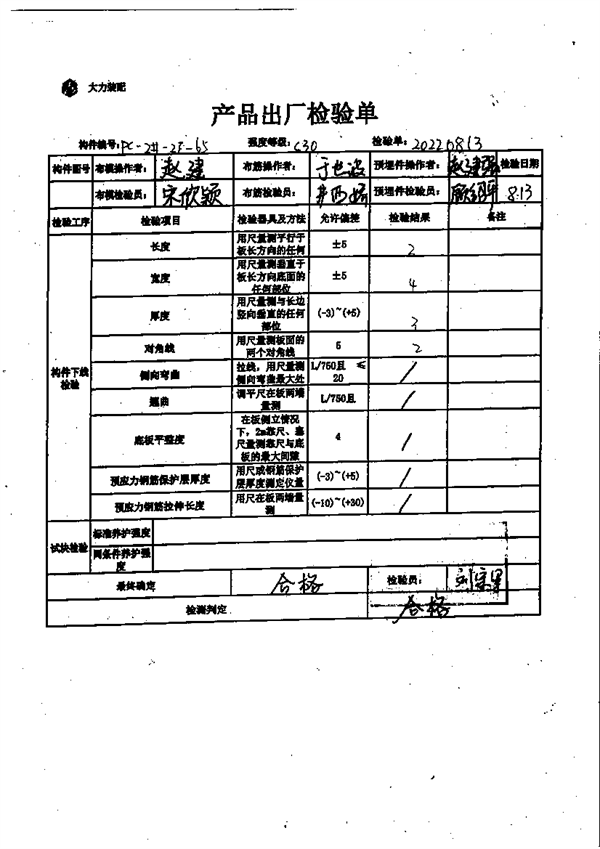 大力装配
产品出厂检验单
构件编号: PC-2#-2F-65 强度等级: C30 检验单: 20220813
构件图号 布模操作者: 赵建 布筋操作者: 预埋件操作者: 赵建强 检验日期
布模检验员: 宋欣颖 布筋检验员: 预埋件检验员: 8.13
检验工序 检验项目 检验器具及方法 允许偏差 检验结果 备注
构件下线检验
长度 用尺量测平行于板长方向的任何 ±5 2
宽度 用尺量测垂直于板长方向底面的任何部位 ±5 4
厚度 用尺量测与长边竖向垂直的任何部位 (-3)~(+5) 3
对角线 用尺量测板面的两个对角线 5 2
侧向弯曲 拉线,用尺量测侧向弯曲最大处 L/750且 ≤20 /
翘曲 调平尺在板两端量测 L/750且 /
底板平整度 在板侧立情况下,2m靠尺、塞尺量测靠尺与底板的最大间隙 4 /
预应力钢筋保护层厚度 用尺或钢筋保护层厚度测定仪量 (-3)~(+5) /
预应力钢筋拉伸长度 用尺在板两端量测 (-10)~(+30) /
试块检验 标准养护强度
同条件养护强度
最终确定 合格 检验员:
检测判定 合格